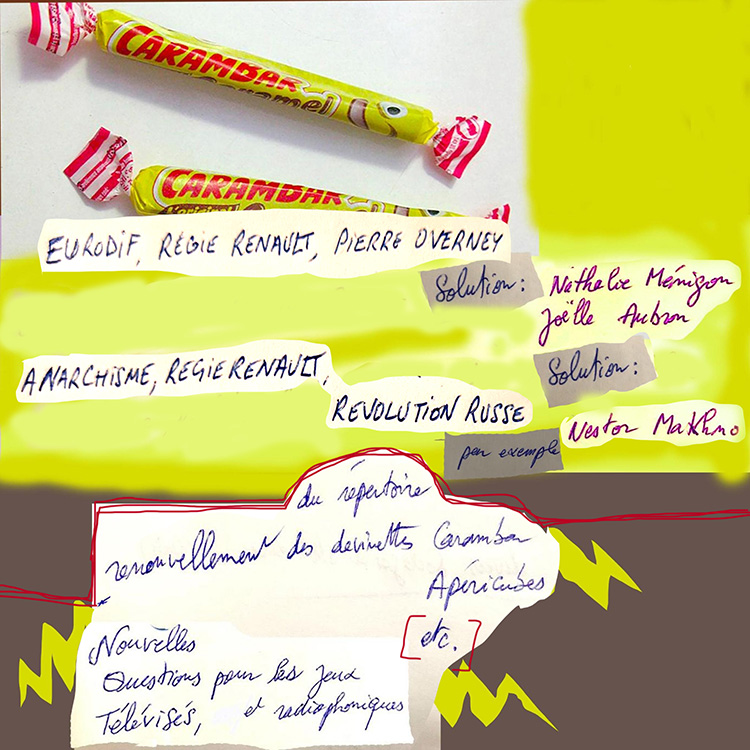 CARAMBAR
Caramel
CARAMBAR
EURODIF, RÉGIE RENAULT, PIERRE OVERNEY
Solution: Nathalie Ménigon
Joëlle Aubron
ANARCHISME, REGIE RENAULT,
Solution:
REVOLUTION RUSSE
par exemple Nestor Makhno
du répertoire
renouvellement des devinettes Carambar
Apéricubes
[etc.]
Nouvelles
Questions pour les jeux
Télévisés, et radiophoniques